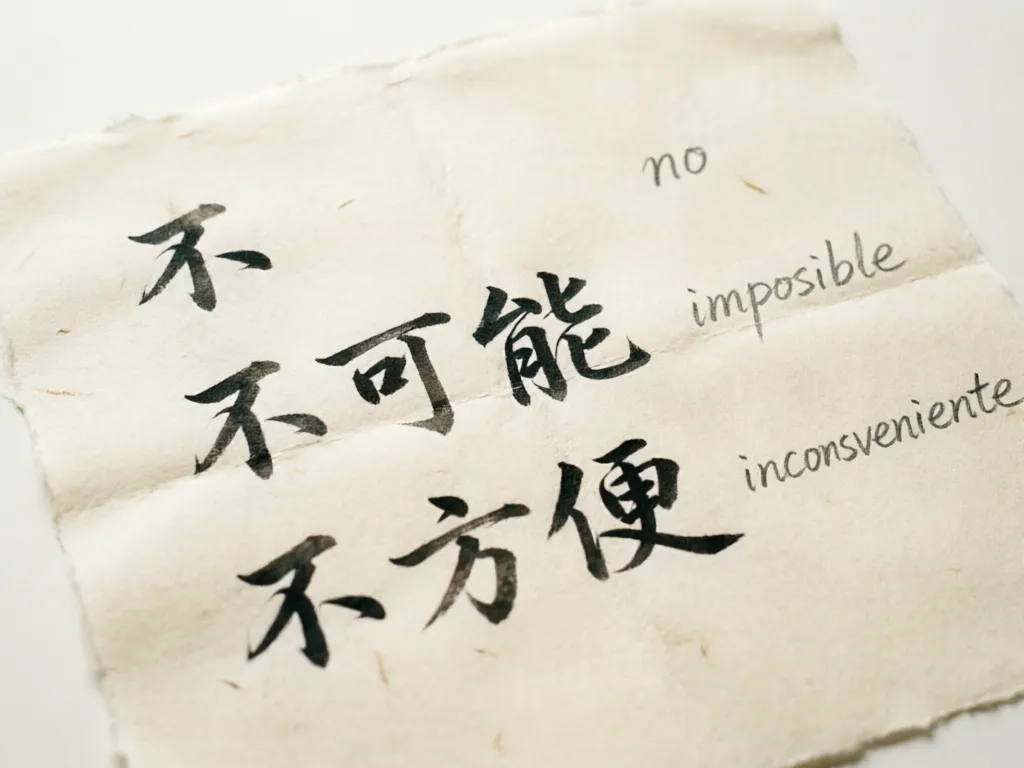 不 no
不可能 imposible
不方便 inconsveniente